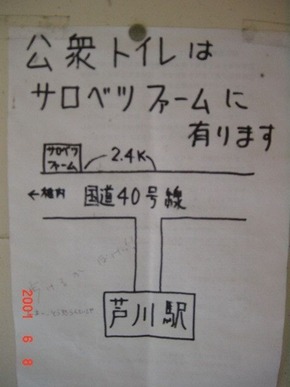 公衆トイレは
サロベツファームに
有ります
サロベツ
ファーム
2.4K
←稚内
国道40号線
芦川駅
2001 6 8